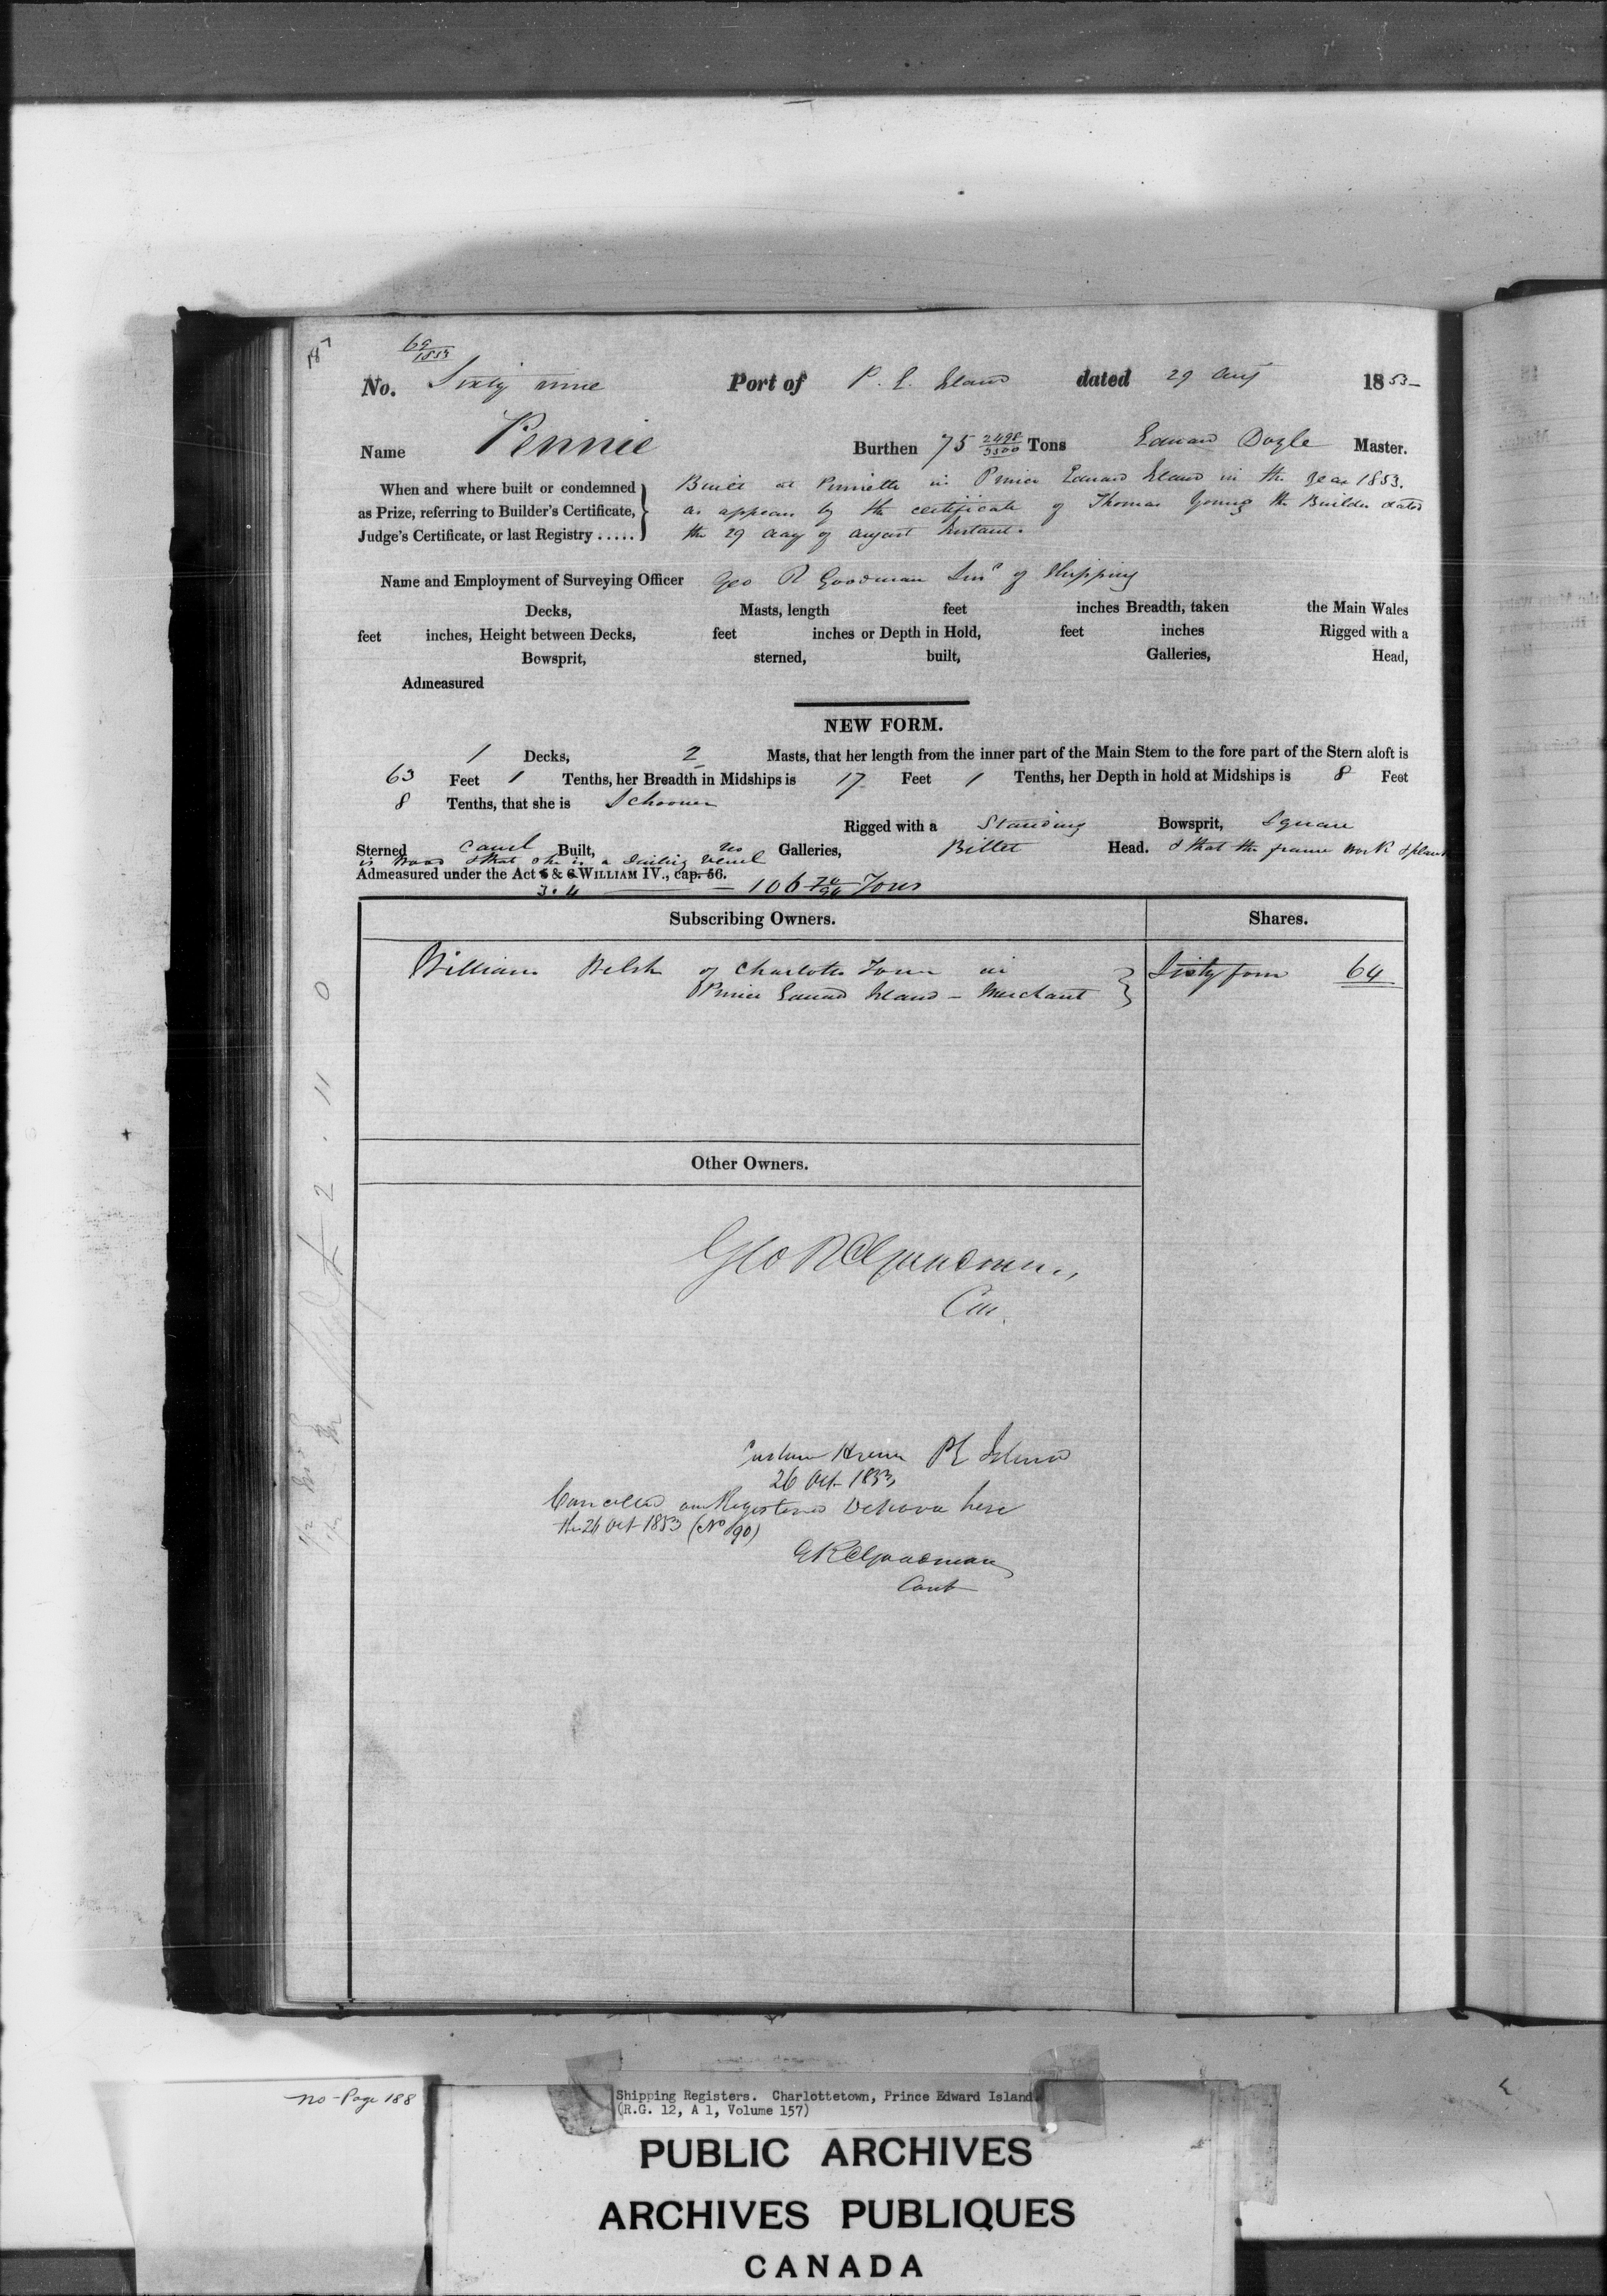 69/1853
No. Sixty nine Port of P. E. Island dated 29 Aug 1853
Name Pennie Burthen 75 2498/3500 Tons Edward Doyle Master.
When and where built or condemned as Prize, referring to Builder's Certificate, Judge's Certificate, or last Registry .....
Built at Pinnette in Prince Edward Island in the year 1853.
as appears by the certificate of Thomas Young the Builder dated
the 29 day of August Instant.
Name and Employment of Surveying Officer Geo R Goodman Surr of Shipping
Decks, Masts, length feet inches Breadth, taken the Main Wales
feet inches, Height between Decks, feet inches or Depth in Hold, feet inches Rigged with a
Bowsprit, sterned, built, Galleries, Head,
Admeasured
NEW FORM.
1 Decks, 2 Masts, that her length from the inner part of the Main Stem to the fore part of the Stern aloft is
63 Feet 1 Tenths, her Breadth in Midships is 17 Feet 1 Tenths, her Depth in hold at Midships is 8 Feet
8 Tenths, that she is Schooner
Rigged with a Standing Bowsprit, Square
Sterned Carvel Built, no Galleries, Billet Head. & that the frame work & plank
is Wood & that she is a Sailing Vessel
Admeasured under the Act 5 & 6 WILLIAM IV., cap. 56.
3. 4 — 106 70/94 Tons
Subscribing Owners. Shares.
William Welsh of Charlotte Town in Sixty four 64
Prince Edward Island - Merchant
Other Owners.
Geo R Goodman,
Custom House PE Island
26 Oct 1853
Cancelled and Registered De Novo here
the 26 Oct 1853 (No 90)
G R Goodman
Cont
2 . 11 0
no-Page 188
Shipping Registers. Charlottetown, Prince Edward Island
(R.G. 12, A 1, Volume 157)
PUBLIC ARCHIVES
ARCHIVES PUBLIQUES
CANADA